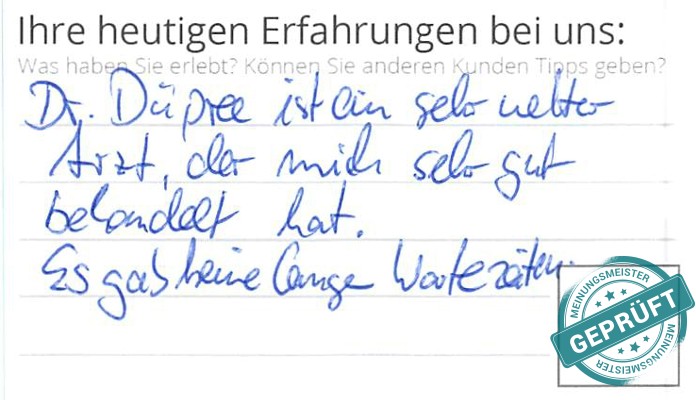 Ihre heutigen Erfahrungen bei uns:
Was haben Sie erlebt? Können Sie anderen Kunden Tipps geben?
Dr. Düpree ist ein sehr netter
Arzt, der mich sehr gut
behandelt hat.
Es gab keine lange Wartezeiten.
MEINUNGSMEISTER
GEPRÜFT
MEINUNGSMEISTER